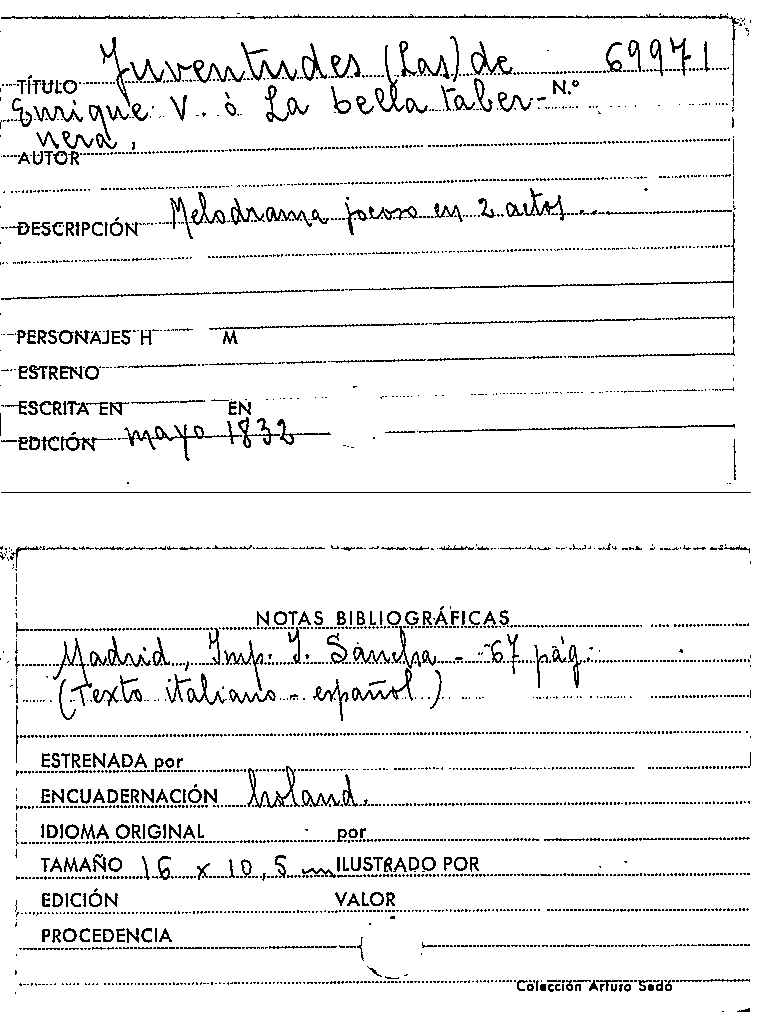 Juventudes (Las) de 69971
TÍTULO N.º
Enrique V. ò La bella taber-
nera,
AUTOR
DESCRIPCIÓN Melodrama jocoso en 2 actos
PERSONAJES H M
ESTRENO
ESCRITA EN EN
EDICIÓN mayo 1832
NOTAS BIBLIOGRÁFICAS
Madrid, Imp. I. Sancha - 67 pág.
(Texto italiano - español)
ESTRENADA por
ENCUADERNACIÓN holand.
IDIOMA ORIGINAL por
TAMAÑO 16 x 10,5 ILUSTRADO POR
EDICIÓN VALOR
PROCEDENCIA
Colección Arturo Sedó